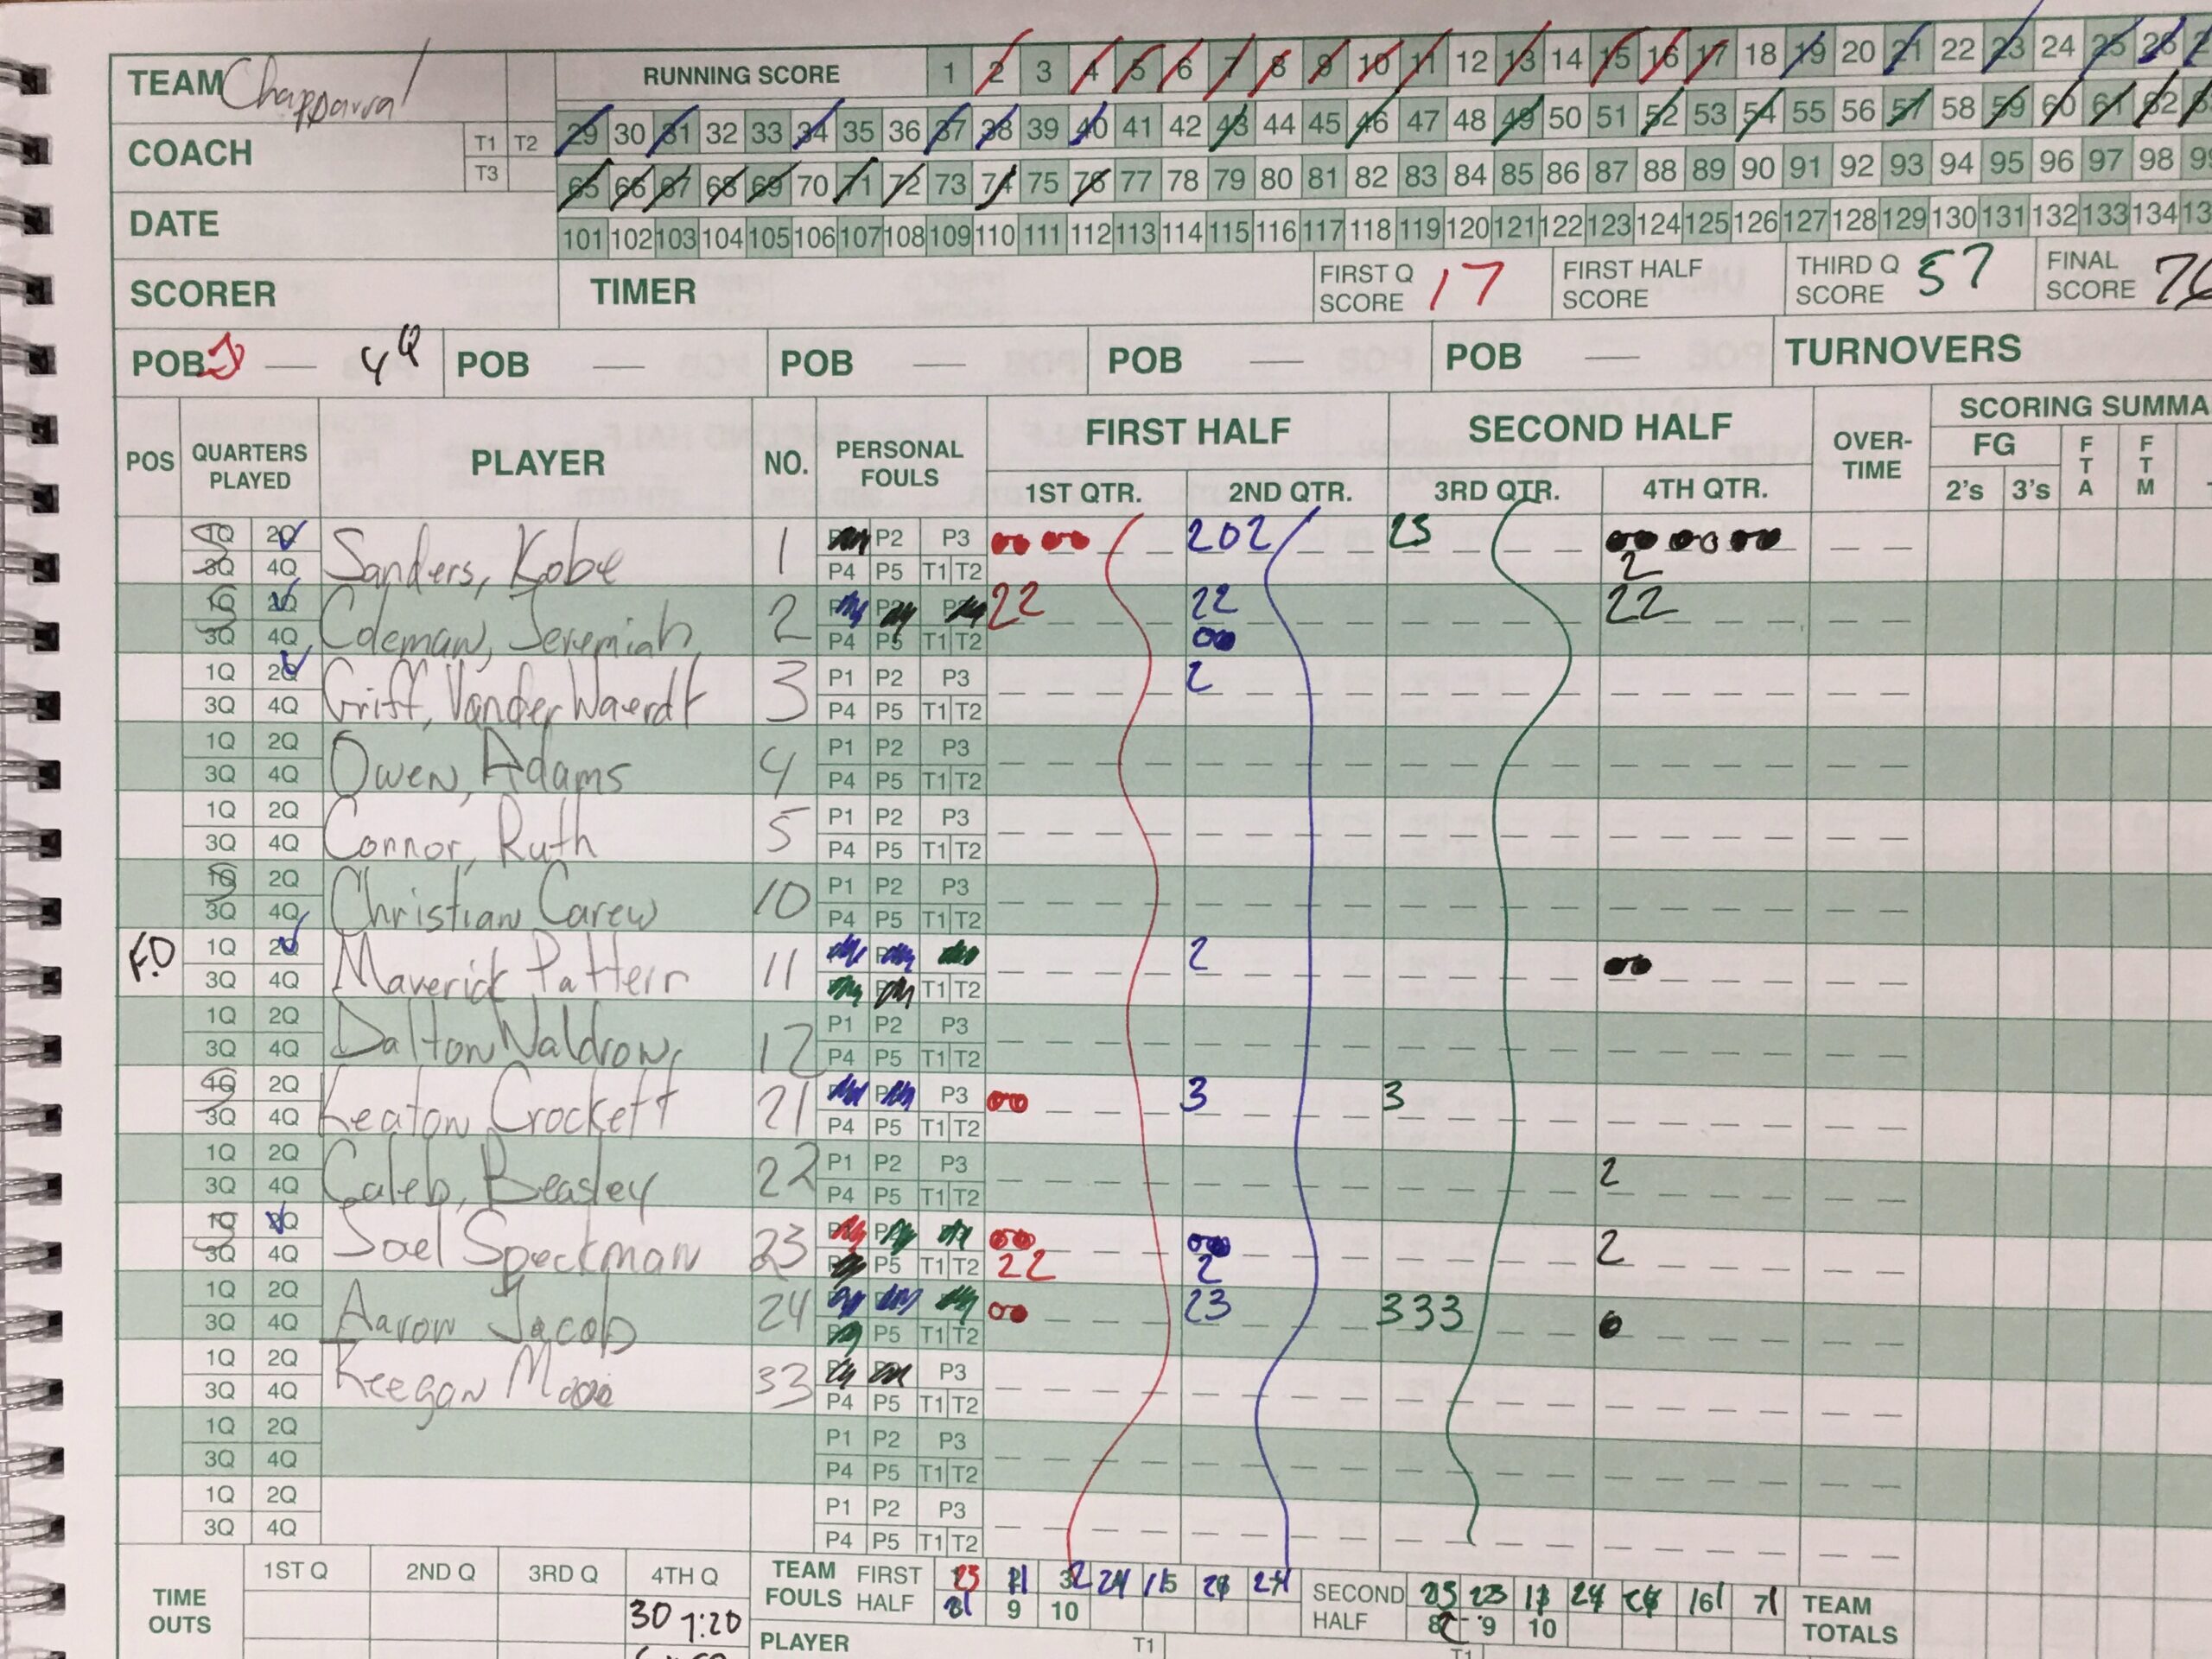 TEAM Chapparral
RUNNING SCORE 1 2 3 4 5 6 7 8 9 10 11 12 13 14 15 16 17 18 19 20 21 22 23 24 25 26
29 30 31 32 33 34 35 36 37 38 39 40 41 42 43 44 45 46 47 48 49 50 51 52 53 54 55 56 57 58 59 60 61 62
65 66 67 68 69 70 71 72 73 74 75 76 77 78 79 80 81 82 83 84 85 86 87 88 89 90 91 92 93 94 95 96 97 98
101 102 103 104 105 106 107 108 109 110 111 112 113 114 115 116 117 118 119 120 121 122 123 124 125 126 127 128 129 130 131 132 133 134
COACH T1 T2
T3
DATE
SCORER TIMER FIRST Q SCORE 17 FIRST HALF SCORE THIRD Q SCORE 57 FINAL SCORE 76
POB — 4Q POB — POB — POB — POB — TURNOVERS
POS QUARTERS PLAYED PLAYER NO. PERSONAL FOULS FIRST HALF SECOND HALF OVER-TIME SCORING SUMMA
1ST QTR. 2ND QTR. 3RD QTR. 4TH QTR. FG 2's 3's FTA FTM
1Q 2Q Sanders, Kobe 1 P2 P3 202 23
3Q 4Q P4 P5 T1 T2 2
1Q 2Q Coleman, Jeremiah 2 22 22 22
3Q 4Q P4 P5 T1 T2
1Q 2Q Griff, VanderWaerdt 3 P1 P2 P3 2
3Q 4Q P4 P5 T1 T2
1Q 2Q Owen, Adams 4 P1 P2 P3
3Q 4Q P4 P5 T1 T2
1Q 2Q Connor, Ruth 5 P1 P2 P3
3Q 4Q P4 P5 T1 T2
1Q 2Q Christian Carew 10 P1 P2 P3
3Q 4Q P4 P5 T1 T2
F.O 1Q 2Q Maverick Pattern 11 2
3Q 4Q T1 T2
1Q 2Q Dalton Waldron, 12 P1 P2 P3
3Q 4Q P4 P5 T1 T2
1Q 2Q Keaton Crockett 21 P3 3 3
3Q 4Q P4 P5 T1 T2
1Q 2Q Caleb, Beasley 22 P1 P2 P3 2
3Q 4Q P4 P5 T1 T2
1Q 2Q Joel Speckman 23 2
3Q 4Q P5 T1 T2 22 2
1Q 2Q Aaron Jacob 24 23 333
3Q 4Q P5 T1 T2
1Q 2Q Keegan 33 P3
3Q 4Q P4 P5 T1 T2
1Q 2Q P1 P2 P3
3Q 4Q P4 P5 T1 T2
1Q 2Q P1 P2 P3
3Q 4Q P4 P5 T1 T2
TIME OUTS 1ST Q 2ND Q 3RD Q 4TH Q TEAM FOULS FIRST HALF
9 10
SECOND HALF
8 9 10
TEAM TOTALS
30 7:20
PLAYER T1 T1